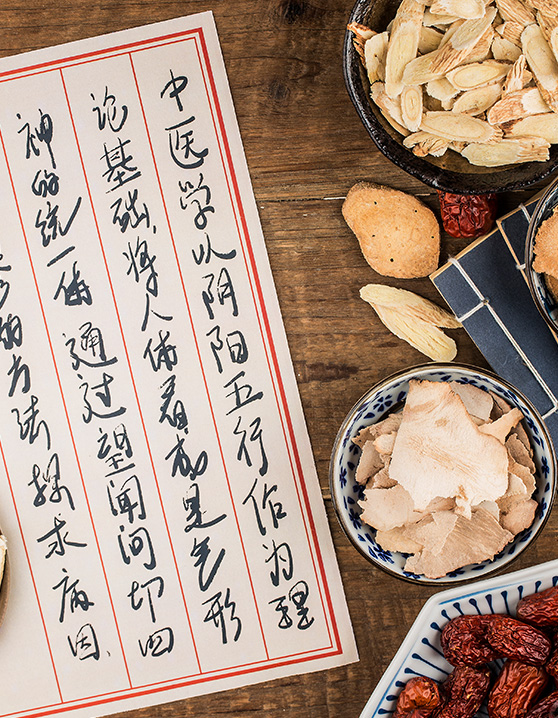 中医学以阴阳五行作为理
论基础,将人体看成是气形
神的统一体 通过望闻问切四
的方法探求病因.